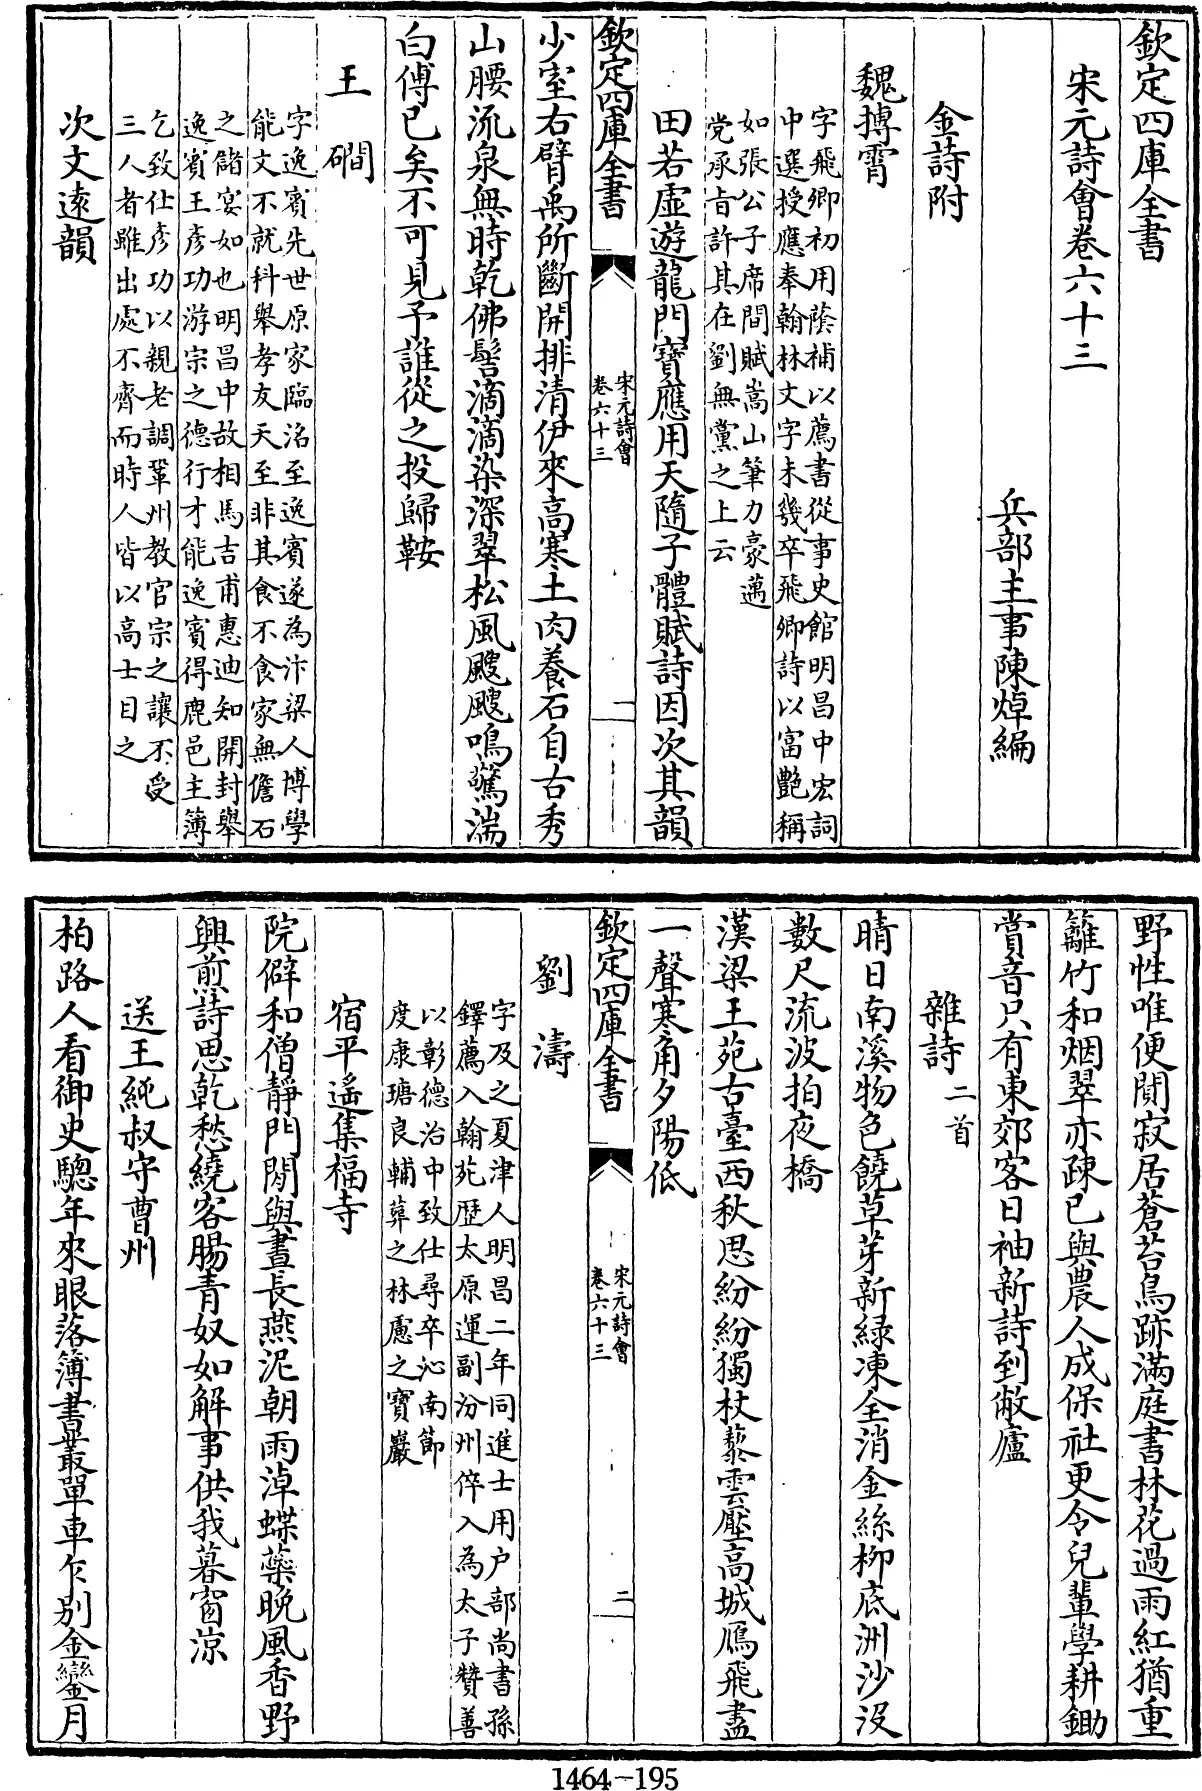 欽定四庫全書
宋元詩會卷六十三
兵部主事陳焯編
金詩附
魏摶霄
字飛卿初用蔭補以薦書從事史館明昌中宏詞
中選授應奉翰林文字未幾卒飛卿詩以富艷稱
如張公子席間賦嵩山筆力豪邁
党承旨許其在劉無黨之上云
田若虛遊龍門寶應用天隨子體賦詩因次其韻
欽定四庫全書
宋元詩會
卷六十三
一
少室右臂禹所斷開排清伊來高寒土肉養石自古秀
山腰流泉無時乾佛髻滴滴染深翠松風颼颼鳴驚湍
白傅已矣不可見予誰從之投歸鞍
王磵
字逸賓先世原家臨洺至逸賓遂為汴梁人博學
能文不就科舉孝友天至非其食不食家無儋石
之儲宴如也明昌中故相馬吉甫惠迪知開封舉
逸賓王彥功游宗之德行才能逸賓得鹿邑主簿
乞致仕彥功以親老調鞏州教官宗之讓不受
三人者雖出處不齊而時人皆以高士目之
次文遠韻
野性唯便閴寂居蒼苔鳥跡滿庭書林花過雨紅猶重
籬竹和烟翠亦疎已與農人成保社更令兒輩學耕鋤
賞音只有東郊客日袖新詩到敝廬
雜詩二首
晴日南溪物色饒草芽新綠凍全消金絲柳底洲沙沒
數尺流波拍夜橋
漢梁王苑古臺西秋思紛紛獨杖藜雲壓高城鴈飛盡
一聲寒角夕陽低
欽定四庫全書
宋元詩會
卷六十三
二
劉濤
字及之夏津人明昌二年同進士用户部尚書孫
鐸薦入翰苑歴太原運副汾州倅入為太子贊善
以彰德治中致仕尋卒沁南節
度康瑭良輔葬之林慮之寶巖
宿平遥集福寺
院僻和僧靜門閒與晝長燕泥朝雨淖蝶藥晚風香野
興煎詩思乾愁繞客腸青奴如解事供我暮窗凉
送王純叔守曹州
柏路人看御史驄年來眼落簿書叢單車乍別金鑾月
1464-195